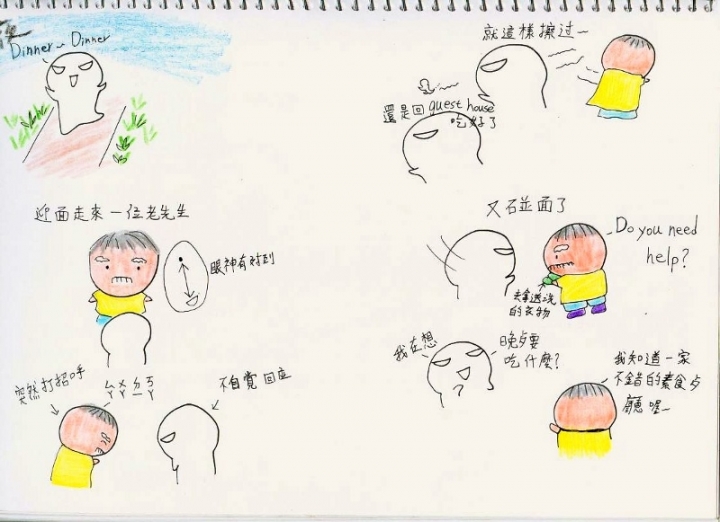 Dinner ~ Dinner
迎面走來一位老先生
眼神有対到
突然打招呼
不自覺回应
就這樣擦过~
還是回guest house
吃好了
又碰面了
Do you need
help?
去拿送洗
的衣物
我在想
晚歺要
吃什麼?
我知道一家
不錯的素食歺
廳喔~